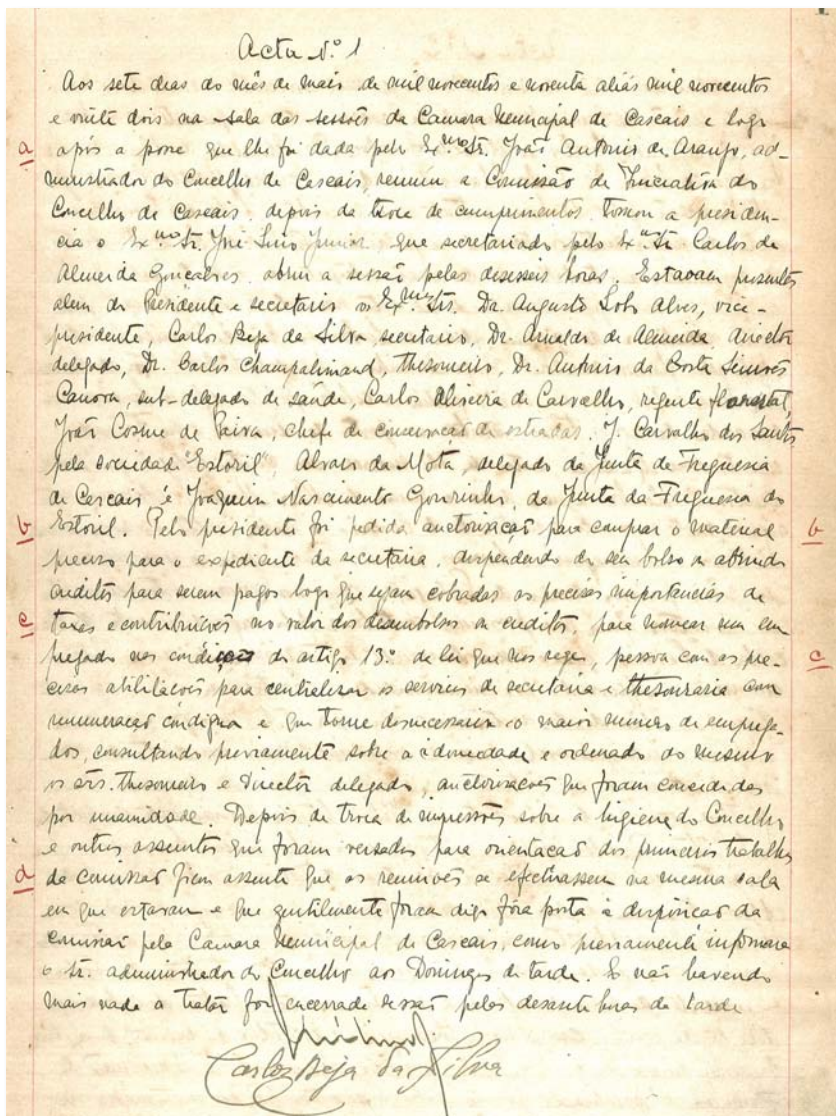 Acta N.º 1
Aos sete dias do mês de maio de mil novecentos e noventa aliás mil novecentos
e vinte dois na sala das sessões da Camara Municipal de Cascais e logo
após a posse que lhe foi dada pelo Ex.mo Sr. João Antonio de Araujo, ad-
ministrador do Concelho de Cascais, reuniu a Comissão de Iniciativa do
Concelho de Cascais. depois da troca de cumprimentos tomou a presiden-
cia o Ex.mo Sr. José Junior que secretariado pelo Ex.mo Sr. Carlos de
Almeida Gonçalves abriu a sessão pelas deseseis horas. Estavam presentes
alem do Presidente e secretario os Ex.mos Srs. Dr. Augusto Lobo Alves, vice-
presidente, Carlos Beja da Silva secretario, Dr. Arnaldo de Almeida, director
delegado, Dr. Carlos Champalimaud, thesoureiro, Dr. Antonio da Costa Simões
Canova, sub-delegado de saúde, Carlos Oliveira de Carvalho, regente florestal,
João Cosme de Paiva, chefe de conservação de estradas, J. Carvalho dos Santos
pela sociedade "Estoril", Alvaro da Mota, delegado da Junta de Freguesia
de Cascais e Joaquim Nascimento Gourinho, da Junta da Freguesia do
Estoril. Pelo presidente foi pedida auctorisação para comprar o material
preciso para o expediente da secretaria, dispendendo do seu bolso ou abrindo
creditos para serem pagos logo que sejam cobradas as precisas importancias de
taxas e contribuições no valor dos desembolsos ou creditos, para nomear um em
pregado nas condições do artigo 13.º da lei que nos rege, pessoa com as pre-
cisas abilitações para centralisar os serviços de secretaria e thesouraria com
remuneração condigna e que torne desnecessario o maior numero de emprega-
dos, consultando previamente sobre a idoneidade e ordenado do mesmo
os srs. thesoureiro e Director delegado, auctorisações que foram concedidas
por unanimidade. Depois de troca de impressões sobre a higiene do Concelho
e outros assuntos que foram versados para orientação dos primeiros trabalhos
da comissão ficou assente que as reuniões se efectuassem na mesma sala
em que estavam e que gentilmente foram digo fôra posta à disposição da
comissão pela Camara Municipal de Cascais, como previamente informara
o Sr. administrador do Concelho aos Domingos de tarde. E não havendo
mais nada a tratar foi encerrada sessão pelas desasete horas da tarde
Carlos Beja da Silva
a
b
b
c
c
d